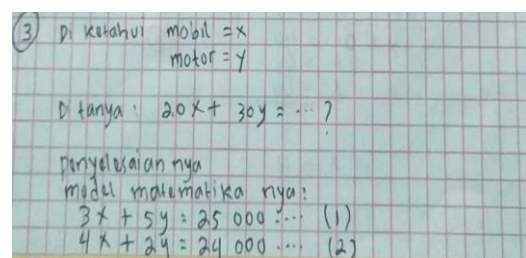 ③ Di ketahui mobil = x
motor = y
Ditanya : 20x + 30y = ... ?
penyelesaian nya
model matematika nya :
3x + 5y = 25 000 ... (1)
4x + 2y = 24 000 ... (2)